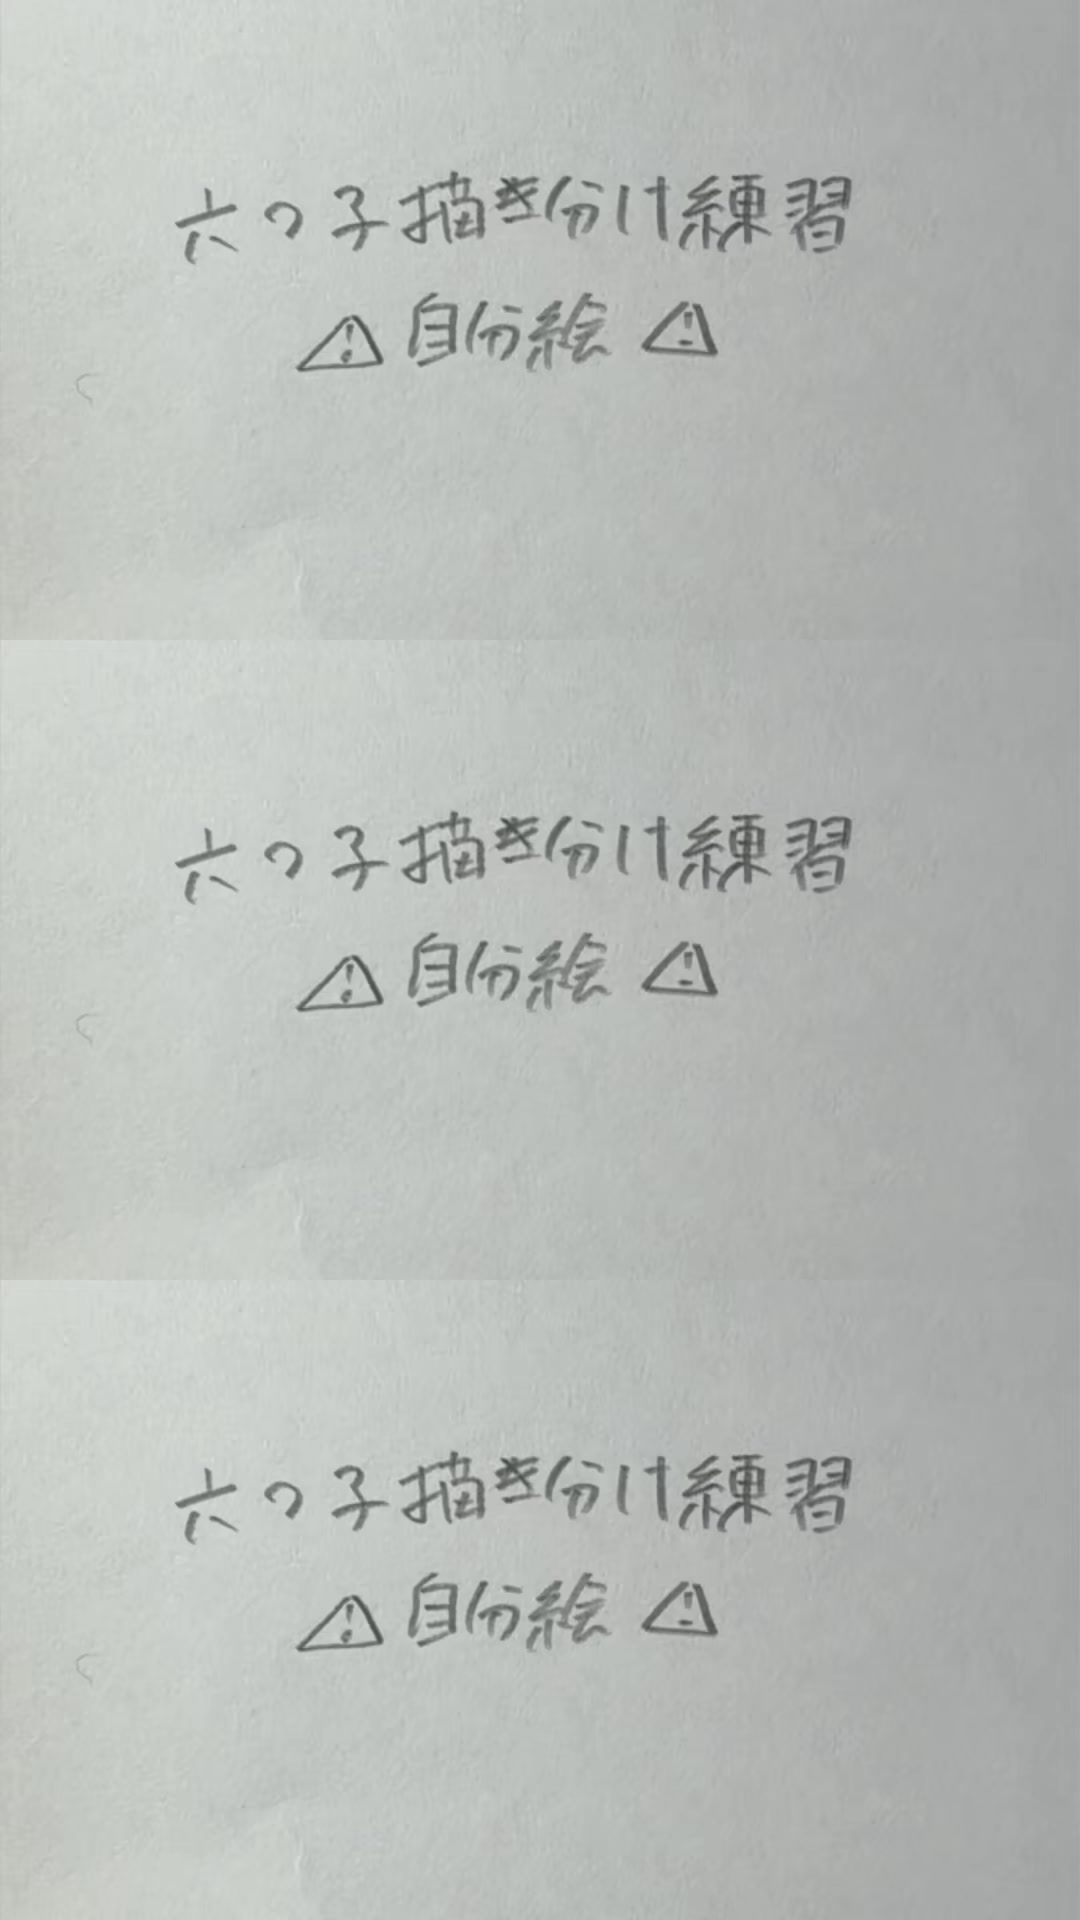 六つ子描き分け練習
⚠自分絵⚠
六つ子描き分け練習
⚠自分絵⚠
六つ子描き分け練習
⚠自分絵⚠